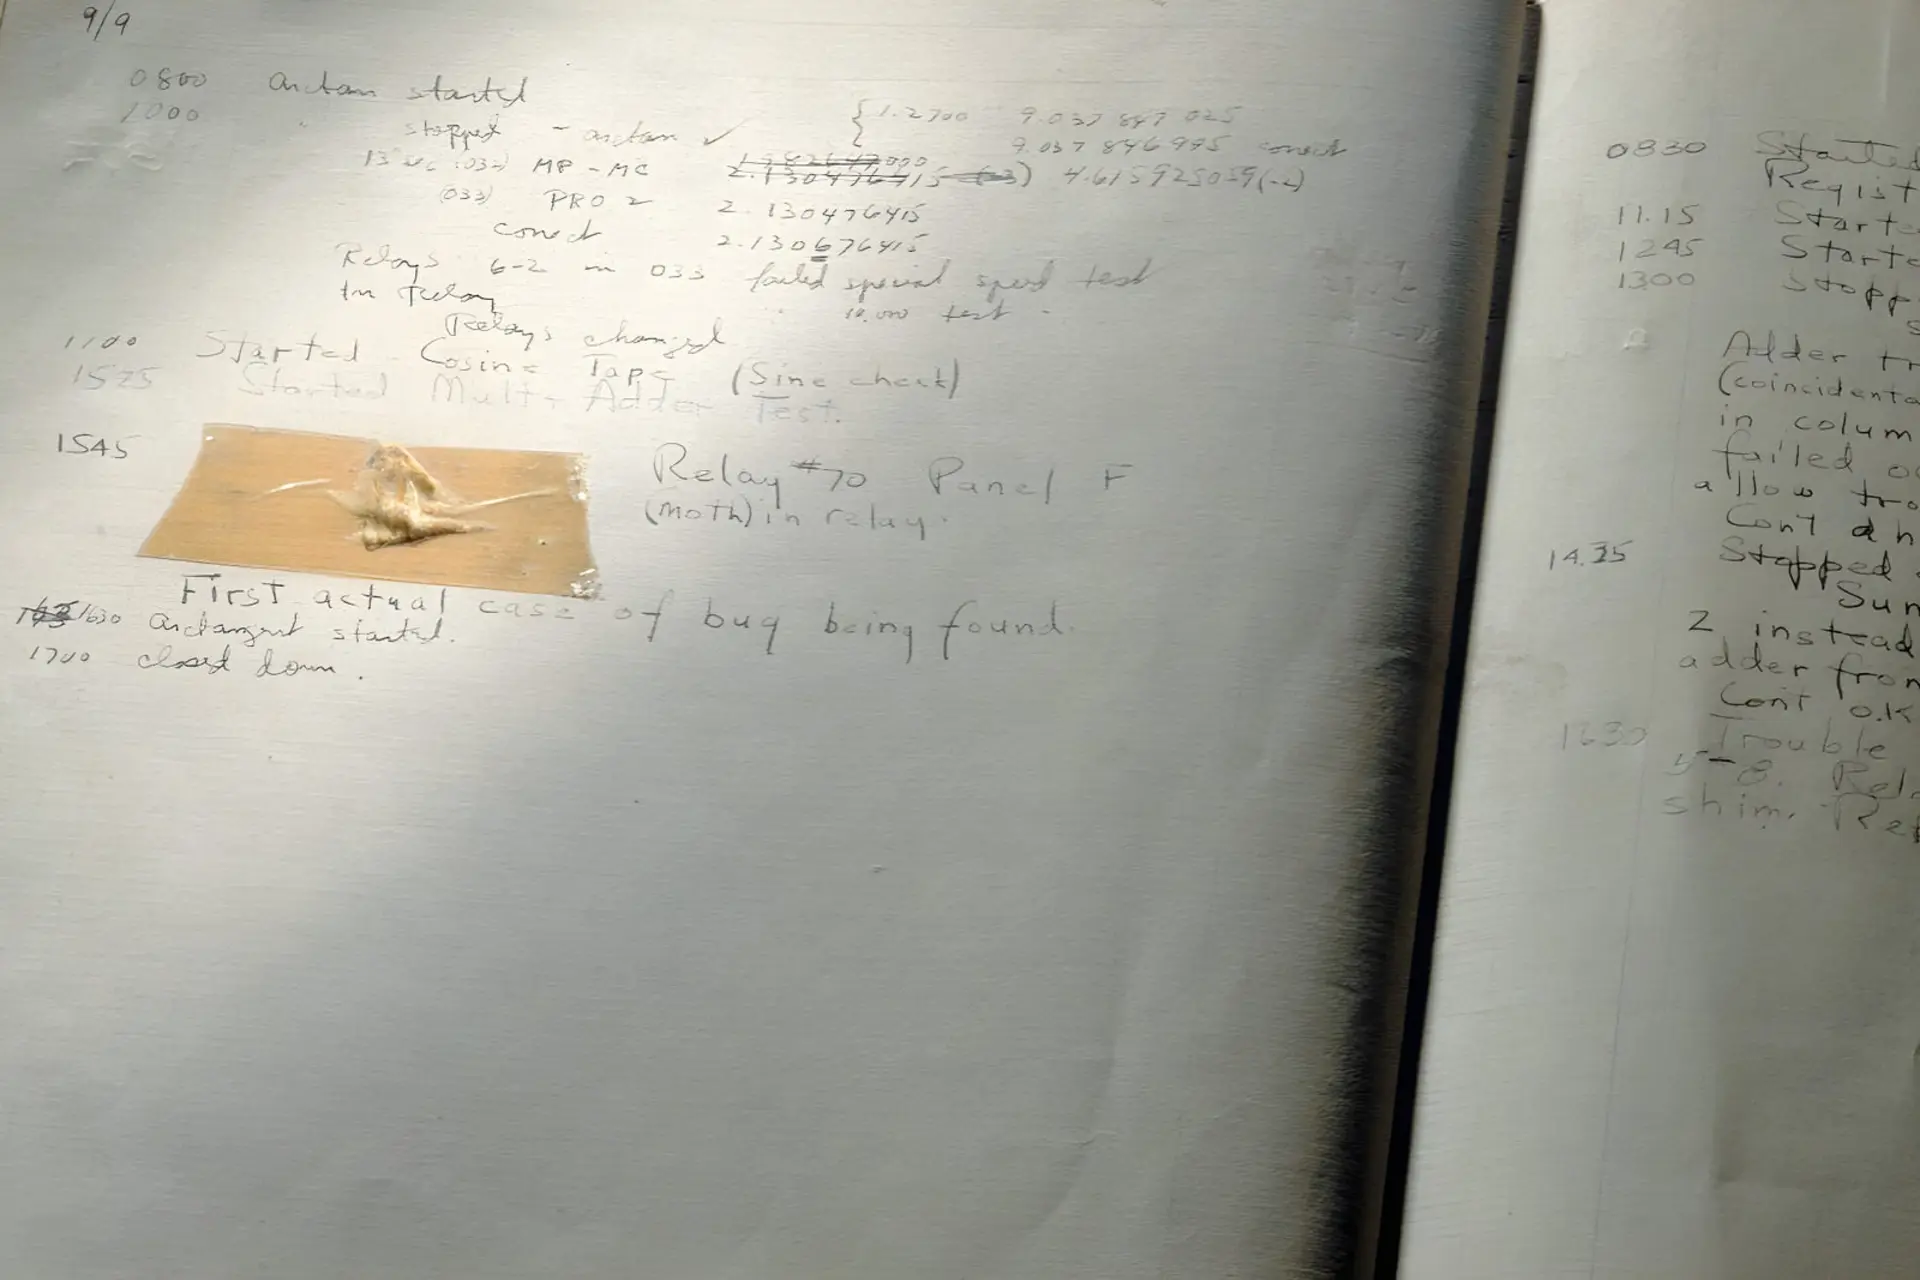 9/9
0800 arctan started
1000 " stopped - arctan ✓ { 1.2700 9.037 847 025
9.037 846 995 correct
13 uc (032) MP - MC 1.982647000
2.130476415 (-3) 4.615925059(-2)
(033) PRO 2 2.130476415
correct 2.130676415
Relays 6-2 in 033 failed special speed test
In Relay 10.000 test.
Relays changed
1100 Started Cosine Tape (Sine check)
1525 Started Mult + Adder Test.
1545 Relay #70 Panel F
(Moth) in relay.
First actual case of bug being found.
1630 arctangent started.
1700 closed down.
0830 Started
Regist
11.15 Starte
1245 Starte
1300 Stopp
s
Adder tr
(coincidenta
in colum
failed
allow tro
Con't
14.35 Stopped
Sun
2 instead
adder from
Con't o.k
1630 Trouble
5-8. Rel
shim. Re